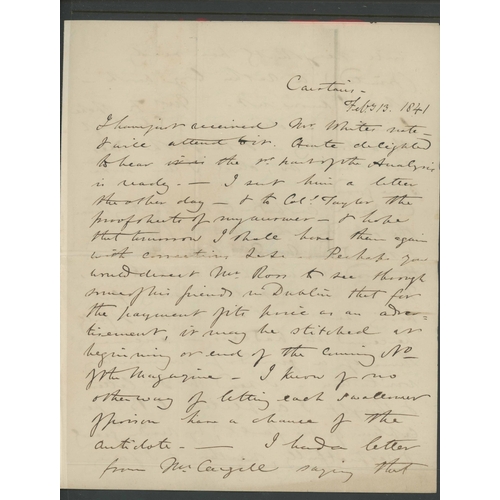 Carstairs -
Feby 13. 1841
I have just received Mr. White's note -
& will attend to it. Quite delighted
to hear the 2d. part of the Analysis
is ready. - I sent him a letter
the other day - & to Coll. Taylor the
proof sheets of my answer - & hope
that tomorrow I shall have them again
with corrections &c &c. Perhaps you
would direct Mr. Ross to see through
some of his friends in Dublin that for
the payment of its price as an adver-
tisement, it may be stitched at
beginning or end of the coming No
of the Magazine - I know of no
other way of letting each swallower
of poison have a chance of the
antidote. - I had a letter
from Mr. Cargill saying that